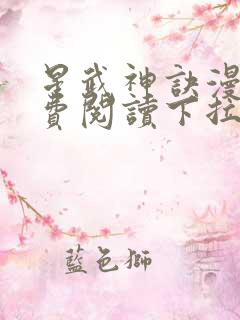 星武神訣漫
費閱讀下拉
藍色獅